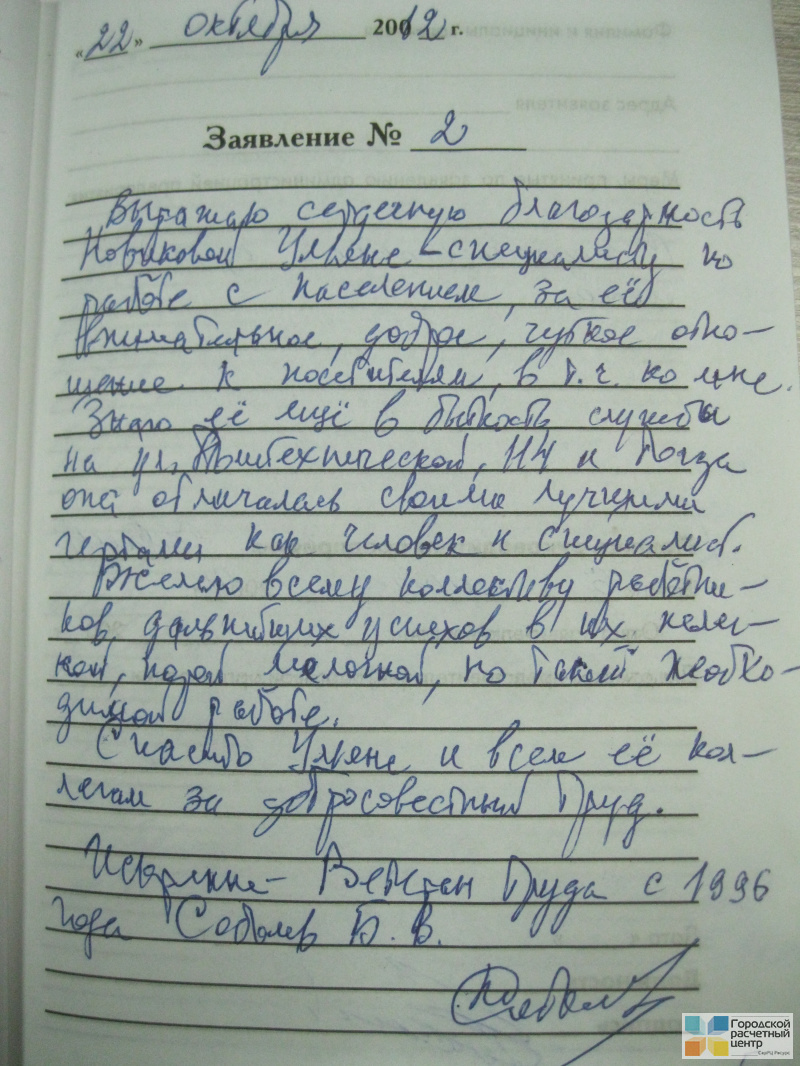 «22» октября 20012 г.
Заявление № 2
Выражаю сердечную благодарность
Новиковой Ульяне – специалисту по
работе с населением, за её
внимательное, доброе, чуткое отно-
шение к посетителям, в т.ч. ко мне.
Знаю её ещё в бытность службы
на ул. Политехнической, и тогда
она отличалась своими лучшими
чертами как человек и специалист.
Желаю всему коллективу работни-
ков дальнейших успехов в их нелег-
кой, порой мелочной, но такой необхо-
димой работе.
Спасибо Ульяне и всем её кол-
легам за добросовестный труд.
Искренне – Ветеран Труда с 1996
года Соболев Б. В.
Городской
расчетный
центр